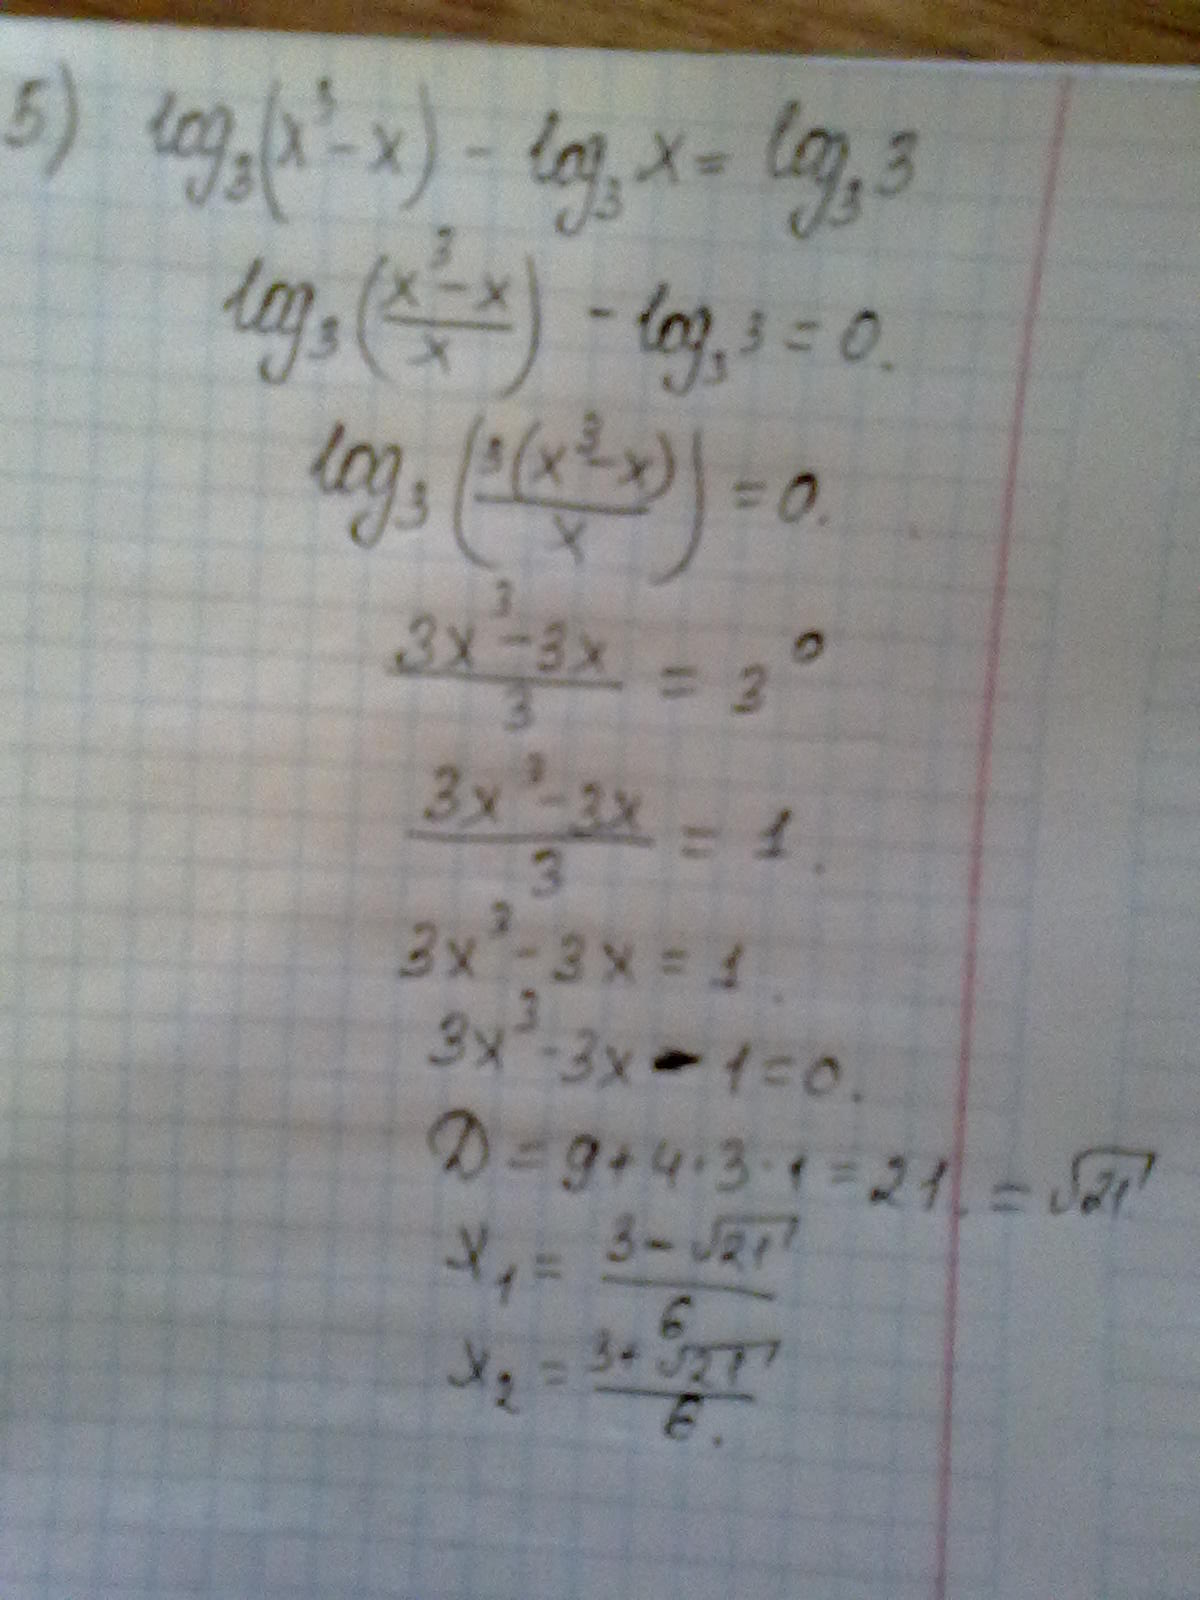 5) log₃(x³-x) - log₃x = log₃3
log₃((x³-x)/x) - log₃3 = 0.
log₃(3(x³-x)/x) = 0.
(3x³-3x)/3 = 3⁰
(3x³-3x)/3 = 1.
3x³-3x = 1.
3x³-3x-1=0.
D = 9+4·3·1 = 21. = √21
x₁ = (3-√21)/6
x₂ = (3+√21)/6.